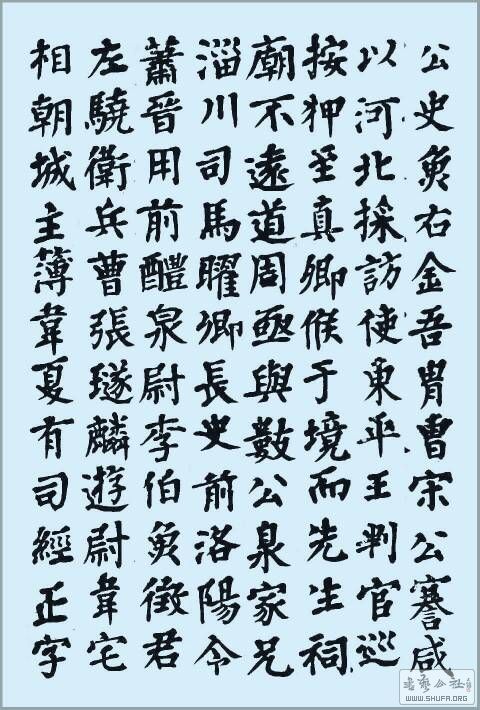 公史魚右金吾胄曹宋公謇咸
以河北採訪使東平王判官巡
按狎至真卿候于境而先生祠
廟不遠道周亟與數公泉家兄
淄川司馬曜卿長史前洛陽令
蕭晉用前醴泉尉李伯魚徵君
左驍衛兵曹張璲麟遊尉韋宅
相朝城主簿韋夏有司經正字
WWW.SHUFA.ORG